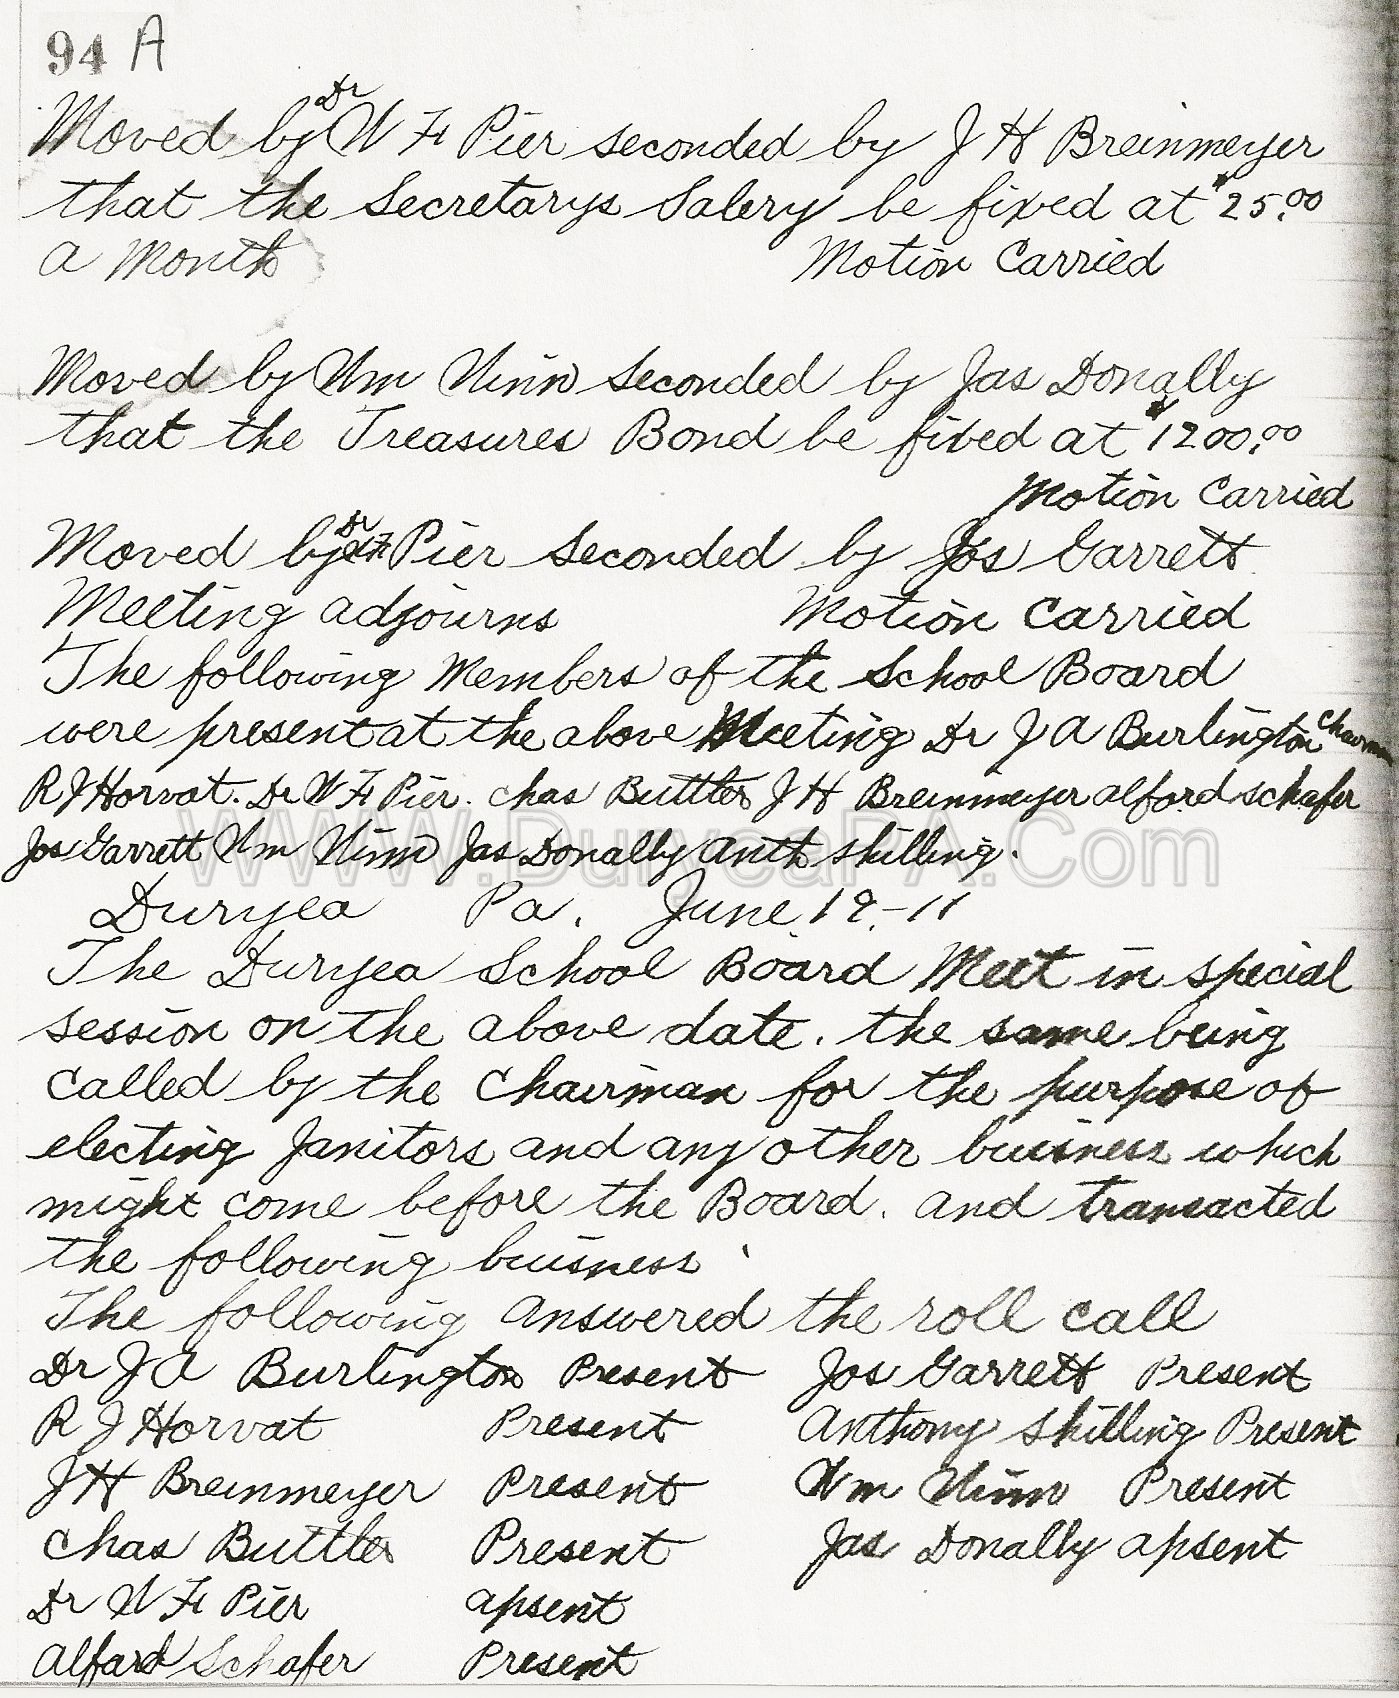 94 A
Moved by Dr W F Pier seconded by J H Breinmeyer
that the Secretarys Salery be fixed at $25.00
a Month Motion Carried
Moved by Wm Ninn seconded by Jas Donally
that the Treasures Bond be fixed at $1200.00
Motion Carried
Moved by Dr Pier seconded by Jos Garrett
Meeting adjourns Motion Carried
The following Members of the School Board
were present at the above Meeting Dr J A Burlington Chairman
R J Horvat. Dr W F Pier. Chas Buttler J H Breinmeyer Alford Schafer
Jos Garrett Wm Ninn Jas Donally Anth Skilling.
WWW.DuryeaPA.Com
Duryea Pa. June 19-11
The Duryea School Board Meet in special
session on the above date. the same being
called by the Chairman for the purpose of
electing Janitors and any other buisness which
might come before the Board. and transacted
the following buisness
The following answered the roll call
Dr J A Burlington Present Jos Garrett Present
R J Horvat Present Anthony Skilling Present
J H Breinmeyer Present Wm Ninn Present
Chas Buttler Present Jas Donally apsent
Dr W F Pier apsent
Alfard Schafer Present